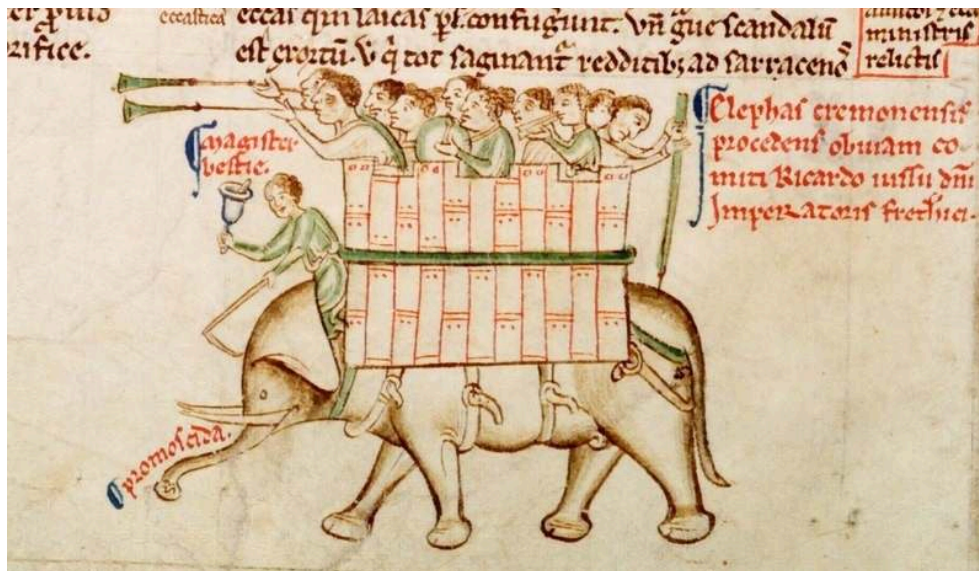 rifice.
eccas qui laicas pl. confugiunt. Vñ gue scandalū
est exortū. v q̇ tot saginant redditib; ad sarracenō
ministris
relictis
Magister
bestie.
Elephas cremonensis
procedens obuiam co
miti Ricardo iussu dñi
Imperatoris fretherici
promoscida.